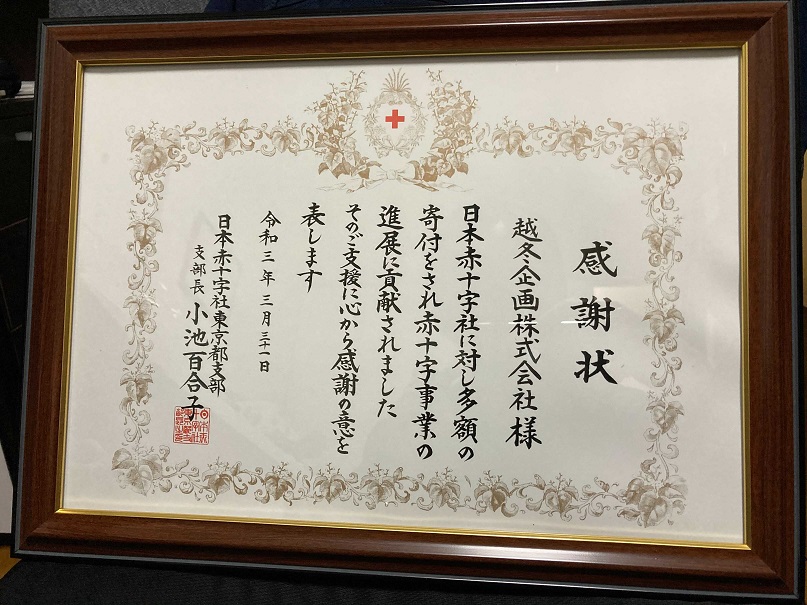 感謝状
越冬企画株式会社様
日本赤十字社に対し多額の
寄付をされ赤十字事業の
進展に貢献されました
そのご支援に心から感謝の意を
表します
令和三年三月三十一日
日本赤十字社東京都支部
支部長 小池百合子